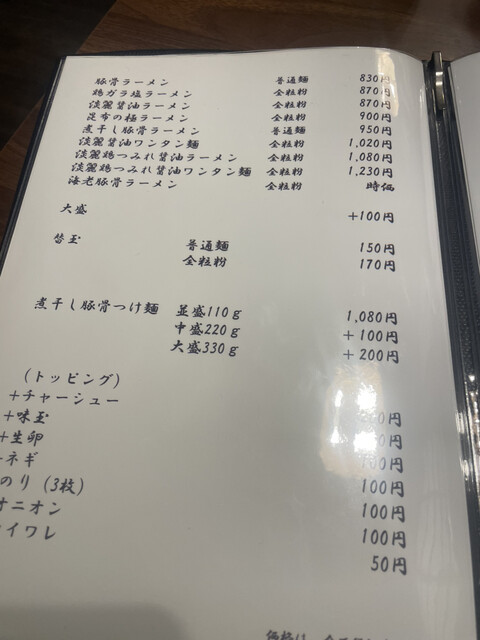 豚骨ラーメン 普通麺 830円
鶏ガラ塩ラーメン 全粒粉 870円
淡麗醤油ラーメン 全粒粉 870円
昆布の極ラーメン 全粒粉 900円
煮干し豚骨ラーメン 普通麺 950円
淡麗醤油ワンタン麺 全粒粉 1,020円
淡麗鶏つみれ醤油ラーメン 全粒粉 1,080円
淡麗鶏つみれ醤油ワンタン麺 全粒粉 1,230円
海老豚骨ラーメン 全粒粉 時価
大盛 +100円
替玉 普通麺 150円
全粒粉 170円
煮干し豚骨つけ麺 並盛110g 1,080円
中盛220g +100円
大盛330g +200円
(トッピング)
+チャーシュー 円
+味玉 円
+生卵 円
ネギ 100円
のり(3枚) 100円
オニオン 100円
イワレ 50円
価格は